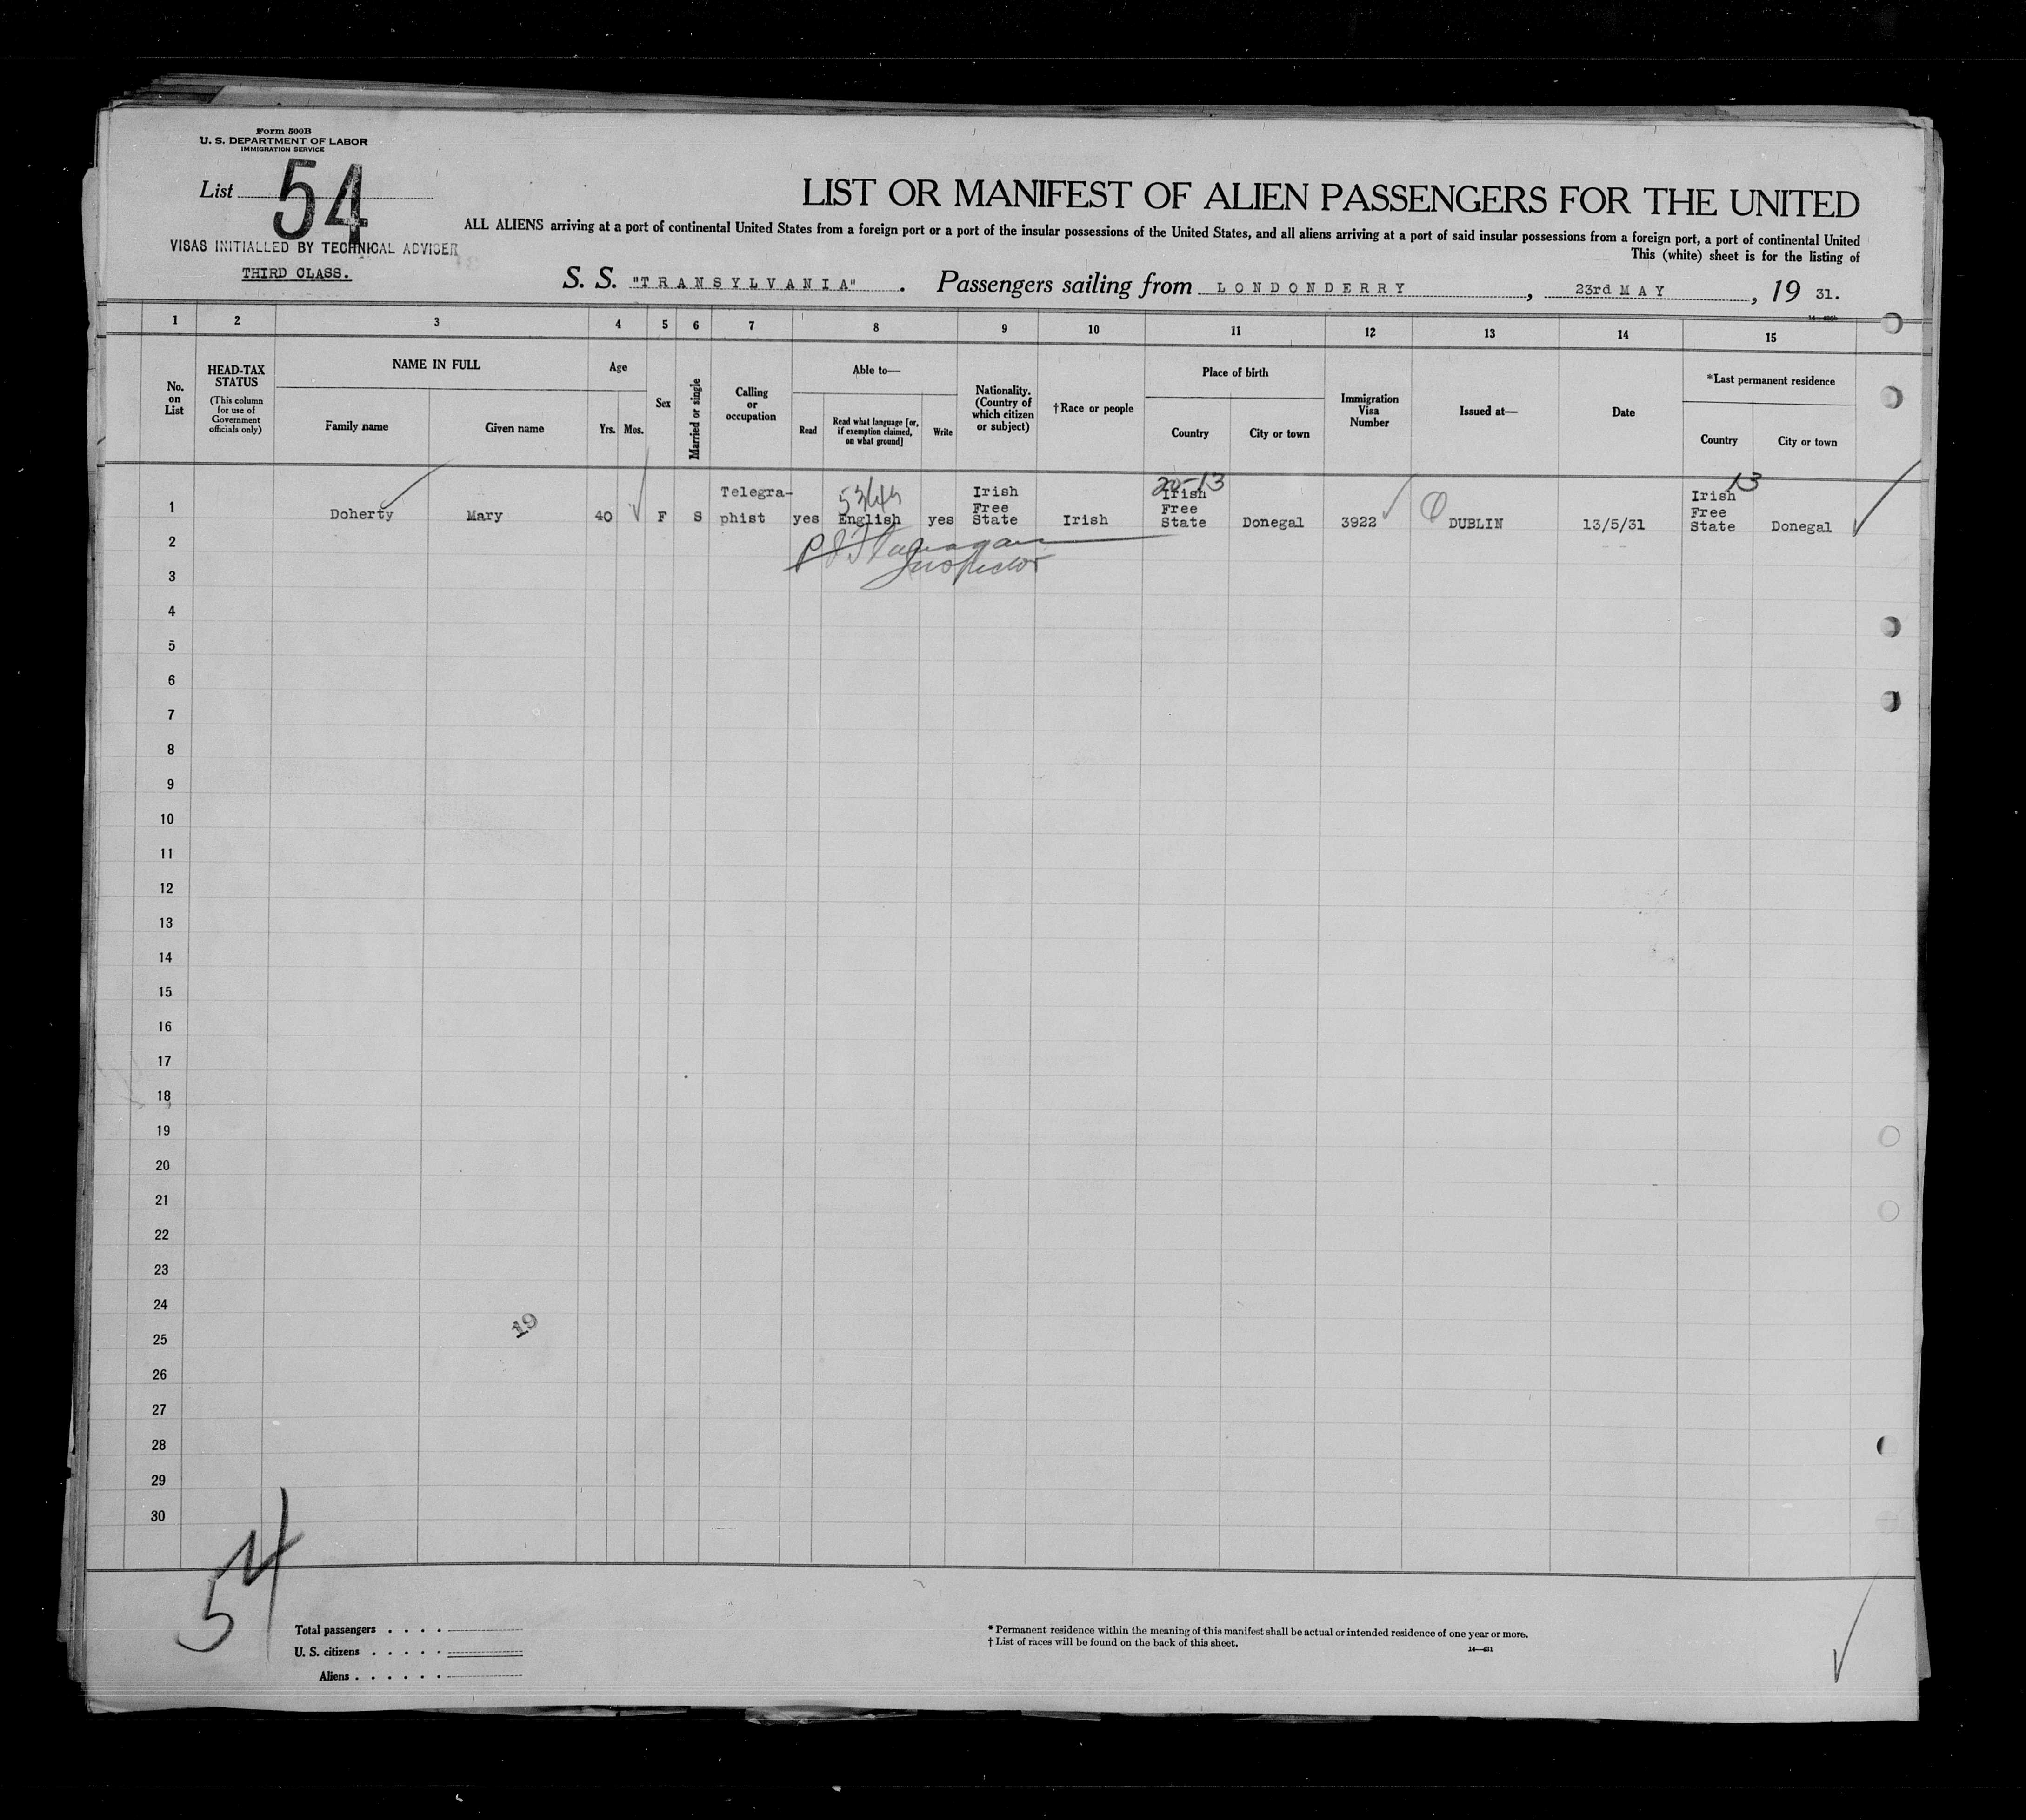 Form 500B
U. S. DEPARTMENT OF LABOR
IMMIGRATION SERVICE
List 54
VISAS INITIALLED BY TECHNICAL ADVISER
THIRD CLASS.
LIST OR MANIFEST OF ALIEN PASSENGERS FOR THE UNITED
ALL ALIENS arriving at a port of continental United States from a foreign port or a port of the insular possessions of the United States, and all aliens arriving at a port of said insular possessions from a foreign port, a port of continental United
This (white) sheet is for the listing of
S. S. "TRANSYLVANIA" . Passengers sailing from LONDONDERRY , 23rd MAY , 19 31.
1 2 3 4 5 6 7 8 9 10 11 12 13 14 15
No. on List
HEAD-TAX STATUS
(This column for use of Government officials only)
NAME IN FULL
Family name
Given name
Age
Yrs.
Mos.
Sex
Married or single
Calling or occupation
Able to—
Read
Read what language [or, if exemption claimed, on what ground]
Write
Nationality. (Country of which citizen or subject)
†Race or people
Place of birth
Country
City or town
Immigration Visa Number
Issued at—
Date
*Last permanent residence
Country
City or town
1 Doherty Mary 40 F S Telegra-phist yes English yes Irish Free State Irish Irish Free State Donegal 3922 DUBLIN 13/5/31 Irish Free State Donegal
13
Inspector
2
3
4
5
6
7
8
9
10
11
12
13
14
15
16
17
18
19
20
21
22
23
24
19
25
26
27
28
29
30
54
Total passengers . . . .
U. S. citizens . . . . .
Aliens . . . . . .
* Permanent residence within the meaning of this manifest shall be actual or intended residence of one year or more.
† List of races will be found on the back of this sheet.
14—431